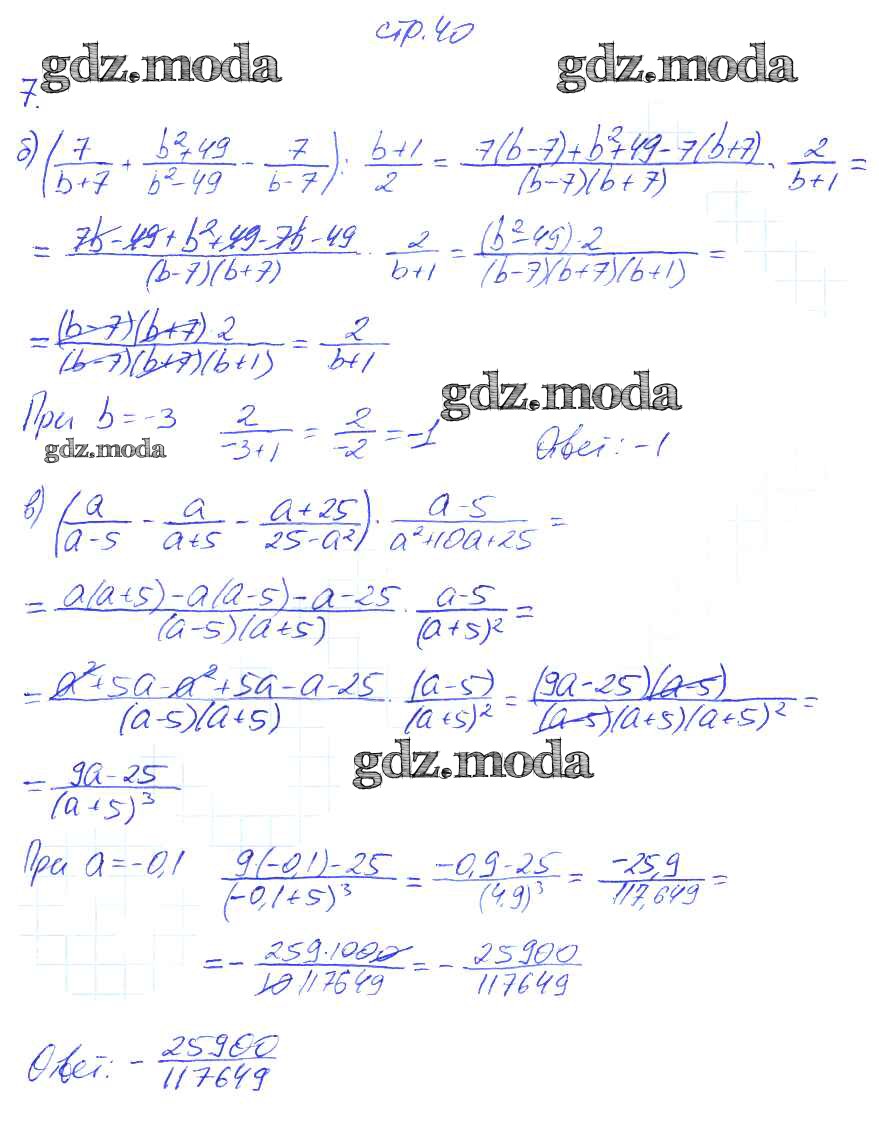 стр. 40
gdz.moda gdz.moda
7.
б) (7/(b+7) + (b²+49)/(b²-49) - 7/(b-7)) : (b+1)/2 = (7(b-7)+b²+49-7(b+7))/((b-7)(b+7)) · 2/(b+1) =
= (7b-49+b²+49-7b-49)/((b-7)(b+7)) · 2/(b+1) = ((b²-49)·2)/((b-7)(b+7)(b+1)) =
= ((b-7)(b+7)·2)/((b-7)(b+7)(b+1)) = 2/(b+1)
gdz.moda
При b=-3 2/(-3+1) = 2/(-2) = -1 Ответ: -1
gdz.moda
в) (a/(a-5) - a/(a+5) - (a+25)/(25-a²)) · (a-5)/(a²+10a+25) =
= (a(a+5)-a(a-5)-a-25)/((a-5)(a+5)) · (a-5)/(a+5)² =
= (a²+5a-a²+5a-a-25)/((a-5)(a+5)) · (a-5)/(a+5)² = ((9a-25)(a-5))/((a-5)(a+5)(a+5)²) =
gdz.moda
= (9a-25)/(a+5)³
При a=-0,1 (9·(-0,1)-25)/(-0,1+5)³ = (-0,9-25)/(4,9)³ = (-25,9)/(117,649) =
= - (259·1000)/(10·117649) = - 25900/117649
Ответ: - 25900/117649